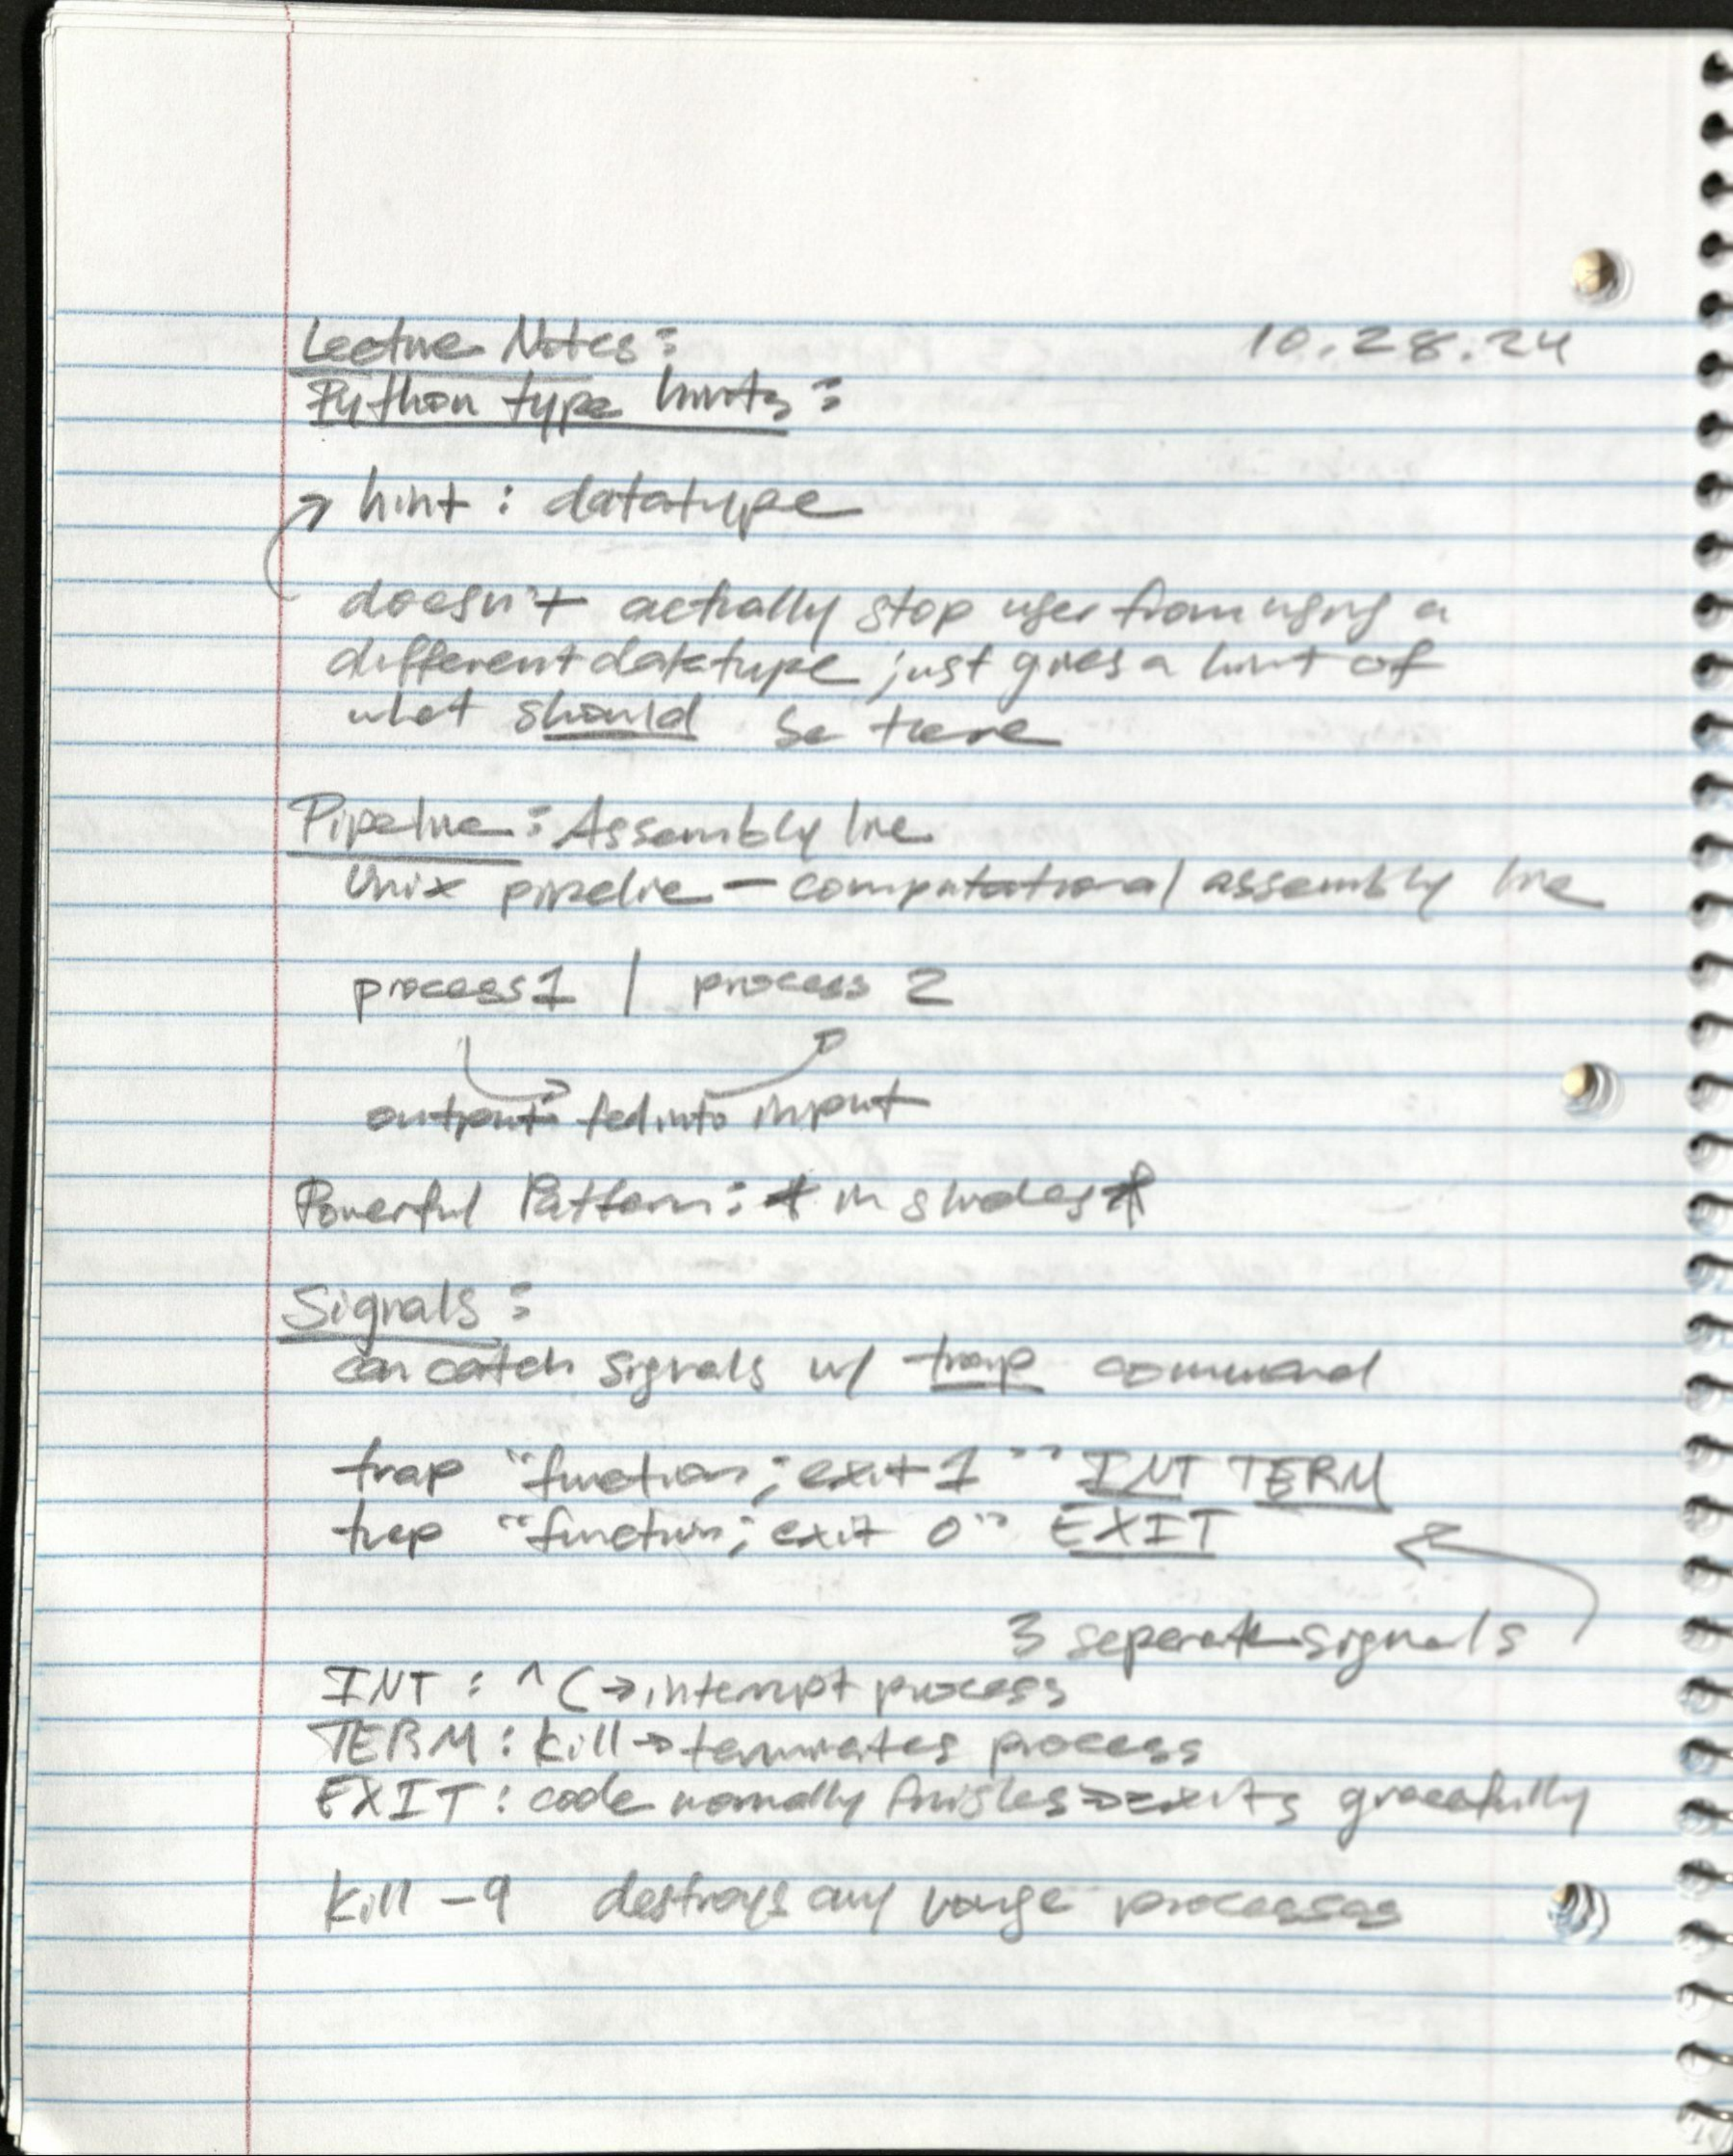 Lecture Notes: 10.28.24
Python type hints:
→ hint : datatype
doesn't actually stop user from using a
different datatype just gives a hint of
what should be there
Pipeline: Assembly line
Unix pipeline - computational assembly line
process1 | process 2
output fed into input
Powerful Pattern: * in slides *
Signals:
can catch signals w/ trap command
trap "function; exit 1" INT TERM
trap "function; exit 0" EXIT
3 seperate signals
INT : ^C → interrupt process
TERM : kill → terminates process
EXIT : code normally finishes → exits gracefully
kill -9 destroys any processes